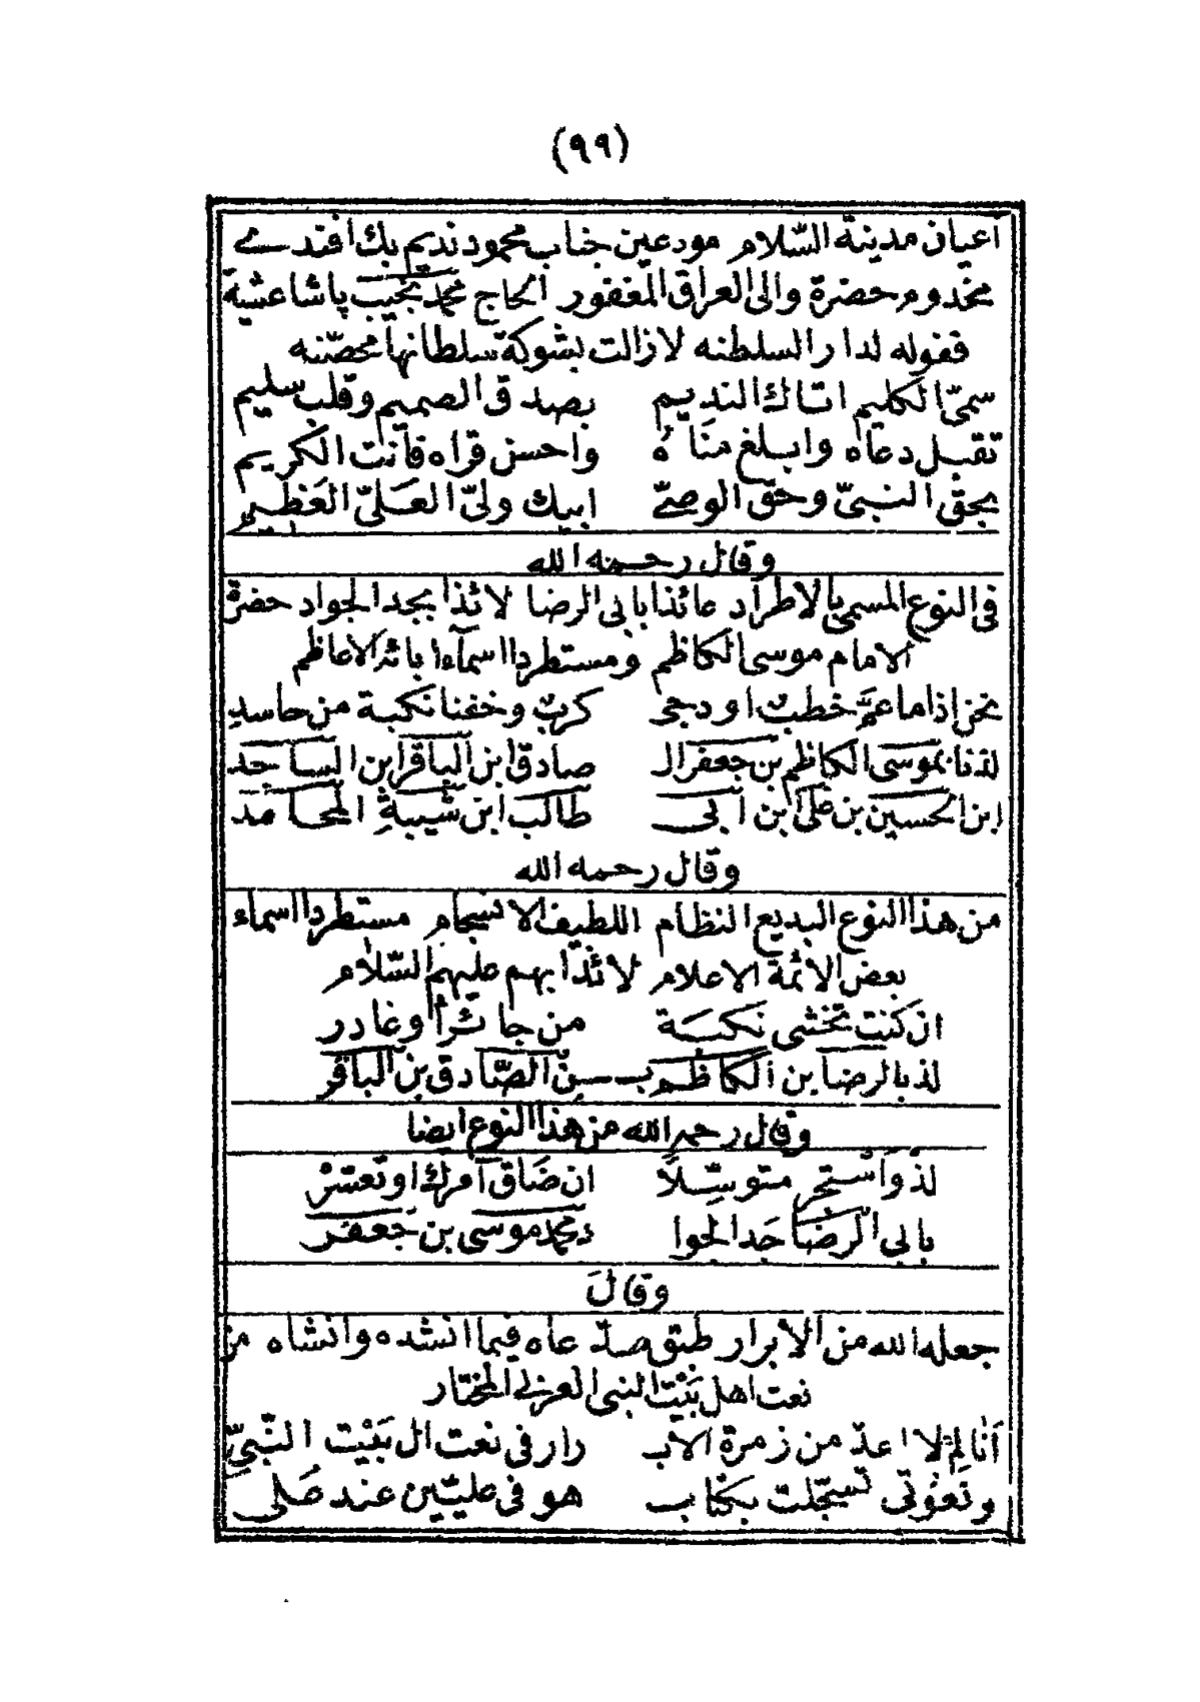 (٩٩)
أعيان مدينة السّلام مودعين جناب محمود نديم بك أفندى
مخدوم حضرة والى العراق المغفور الحاج محمد نجيب پاشا عشية
قفوله لدار السلطنه لا زالت بشوكة سلطانها محصّنه
سمىّ الكليم اتاك النديم بصدق الصميم وقلب سليم
تقبل دعاه وابلغ مناه واحسن قراه فأنت الكريم
بحق النبىّ وحق الوصىّ ابيك ولىّ العلىّ العظيم
وقال رحمه الله
فى النوع المسمى بالاطراد عائذا بابى الرضا لائذا بجد الجواد حضرة
الامام موسى الكاظم ومستطردا اسمآء ابائه الاعاظم
نحن اذا ما عمّ خطب او دجى كرب وخفنا نكبة من حاسد
لذنا بموسى الكاظم بن جعفر ال صادق ابن الباقر ابن الساجد
ابن الحسين بن على ابن ابى طالب ابن شيبة المحامد
وقال رحمه الله
من هذا النوع البديع النظام اللطيف الانسجام مستطردا اسماء
بعض الائمة الاعلام لائذا بهم عليهم السّلام
ان كنت تخشى نكبة من جائر أو غادر
لذ بالرضا بن الكاظم بـن الصّادق بن الباقر
وقال رحمه الله من هذا النوع ايضا
لذ واستجر متوسّلا ان ضاق أمرك او تعسّر
بابى الرضا جد الجوا د محمد موسى بن جعفر
وقال
جعله الله من الأبرار طبق صدّ عاه فيما انشده وانشاه من
نعت اهل بيت النبى العربى المختار
أنا لم لا اعد من زمرة الأب رار فى نعت ال بيت النبىّ
ونعوتى تسجّلت بكتاب هو فى عليّين عند على